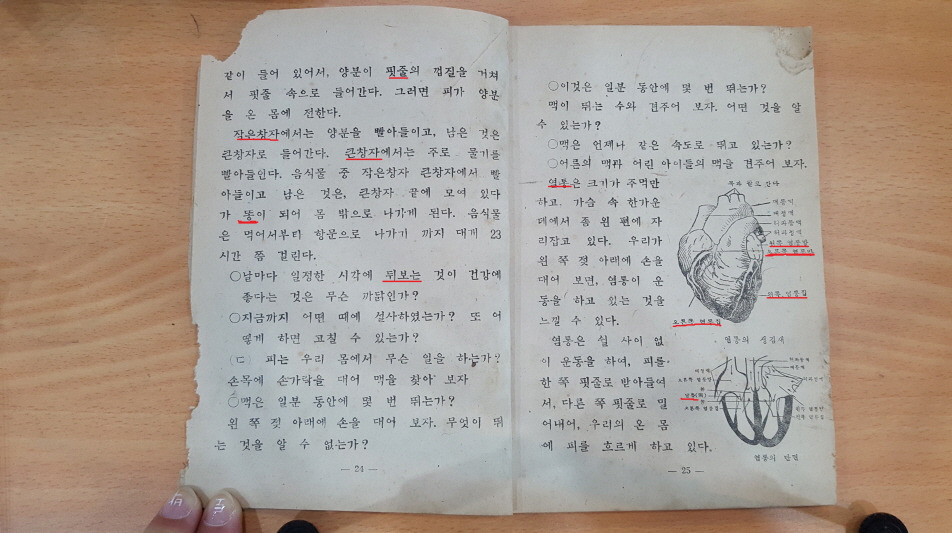 같이 들어 있어서, 양분이 핏줄의 껍질을 거쳐
서 핏줄 속으로 들어간다. 그러면 피가 양분
을 온 몸에 전한다.
작은창자에서는 양분을 빨아들이고, 남은 것은
큰창자로 들어간다. 큰창자에서는 주로 물기를
빨아들인다. 음식물 중 작은창자 큰창자에서 빨
아들이고 남은 것은, 큰창자 끝에 모여 있다
가 똥이 되어 몸 밖으로 나가게 된다. 음식물
은 먹어서부터 항문으로 나가기 까지 대개 23
시간 쯤 걸린다.
○날마다 일정한 시각에 뒤보는 것이 건강에
좋다는 것은 무슨 까닭인가?
○지금까지 어떤 때에 설사하였는가? 또 어
떻게 하면 고칠 수 있는가?
(ㄷ) 피는 우리 몸에서 무슨 일을 하는가?
손목에 손가락을 대어 맥을 찾아 보자
○맥은 일분 동안에 몇 번 뛰는가?
왼 쪽 젖 아래에 손을 대어 보자. 무엇이 뛰
는 것을 알 수 없는가?
— 24 —
○이것은 일분 동안에 몇 번 뛰는가?
맥이 뛰는 수와 견주어 보자. 어떤 것을 알
수 있는가?
○맥은 언제나 같은 속도로 뛰고 있는가?
○어른의 맥과 어린 아이들의 맥을 견주어 보자.
염통은 크기가 주먹만
하고, 가슴 속 한가운
데에서 좀 왼 편에 자
리잡고 있다. 우리가
왼 쪽 젖 아래에 손을
대어 보면, 염통이 운
동을 하고 있는 것을
느낄 수 있다.
대동맥
왼쪽 염통방
오른쪽 염통방
왼쪽 염통집
오른쪽 염통집
염통의 생김새
염통은 쉴 사이 없
이 운동을 하여, 피를
한 쪽 핏줄로 받아들여
서, 다른 쪽 핏줄로 밀
어내어, 우리의 온 몸
에 피를 흐르게 하고 있다.
대정맥
오른쪽 염통방
오른쪽 염통집
대동맥
왼쪽 염통방
왼쪽 염통집
염통의 단면
— 25 —